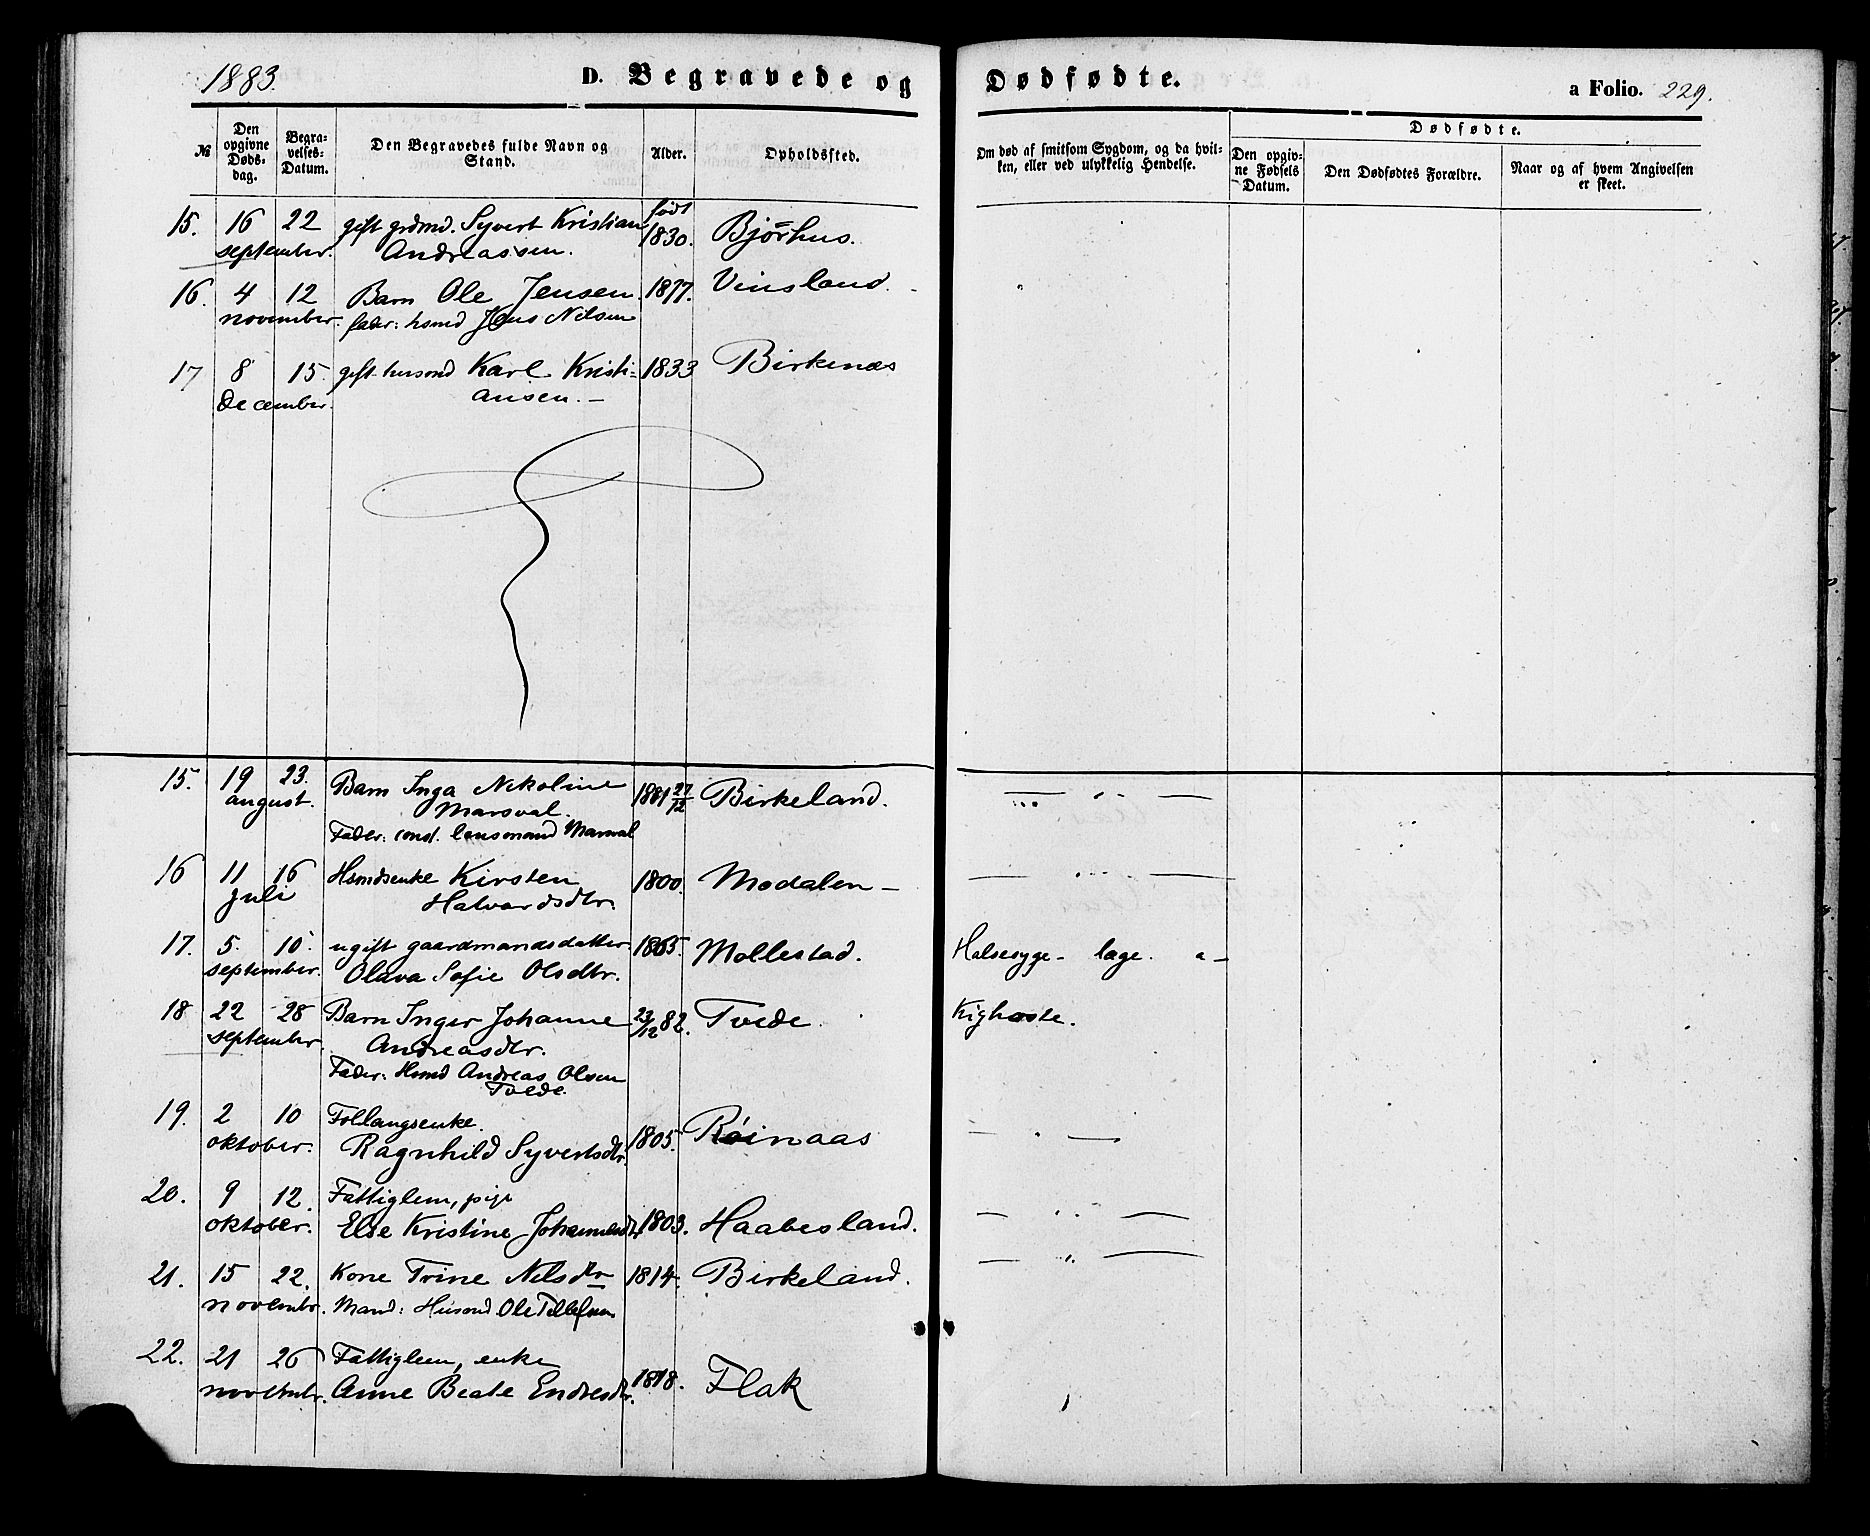 1883. D. Begravede og Dødfødte. a Folio. 229.
№ Den opgivne Døds-dag. Begra-velses-Datum. Den Begravedes fulde Navn og Stand. Alder. Opholdssted. Om død af smitsom Sygdom, og da hvil-ken, eller ved ulykkelig Hendelse. Dødfødte. Den opgiv-ne Fødsels Datum. Den Dødfødtes Forældre. Naar og af hvem Angivelsen er skeet.
15. 16 22 gift grdmd. Syvert Kristian født 1830. Bjørhus.
september. Andreassen.
16. 4 12 Barn Ole Jensen. 1877. Vinsland.
november. fader: hsmd Jens Nilsen
17 8 15. gift husmd Karl Kristi= 1833 Birkenæs
december. ansen. —
15. 19 23. Barn Inga Nikoline 1881 27/12 Birkeland.
august. Marsval.
Fader: const. lensmand Marsval
16 11 16 Hsmdsenke Kirsten 1800. Modalen —
juli Halvardsdtr.
17. 5. 10. ugift gaardmandsdatter 1865. Mollestad. Halsesyge - læge. a -
september. Olava Sofie Olsdtr.
18 22 28 Barn Inger Johanne 23/12 82. Tvede. Kighoste.
september. Andreasdtr.
Fader: Hsmd Andreas Olsen
Tvede.
19. 2 10 Follaugsenke.
oktober. Ragnhild Syvertsdtr. 1805. Røinaas
20. 9 12. Fattiglem, pige
oktober. Else Kristine Johannesdtr 1803. Haabesland.
21. 15 22. Kone Trine Nilsdtr 1814. Birkeland.
novembr. Mand: Husmd. Ole Tellefsen
22. 21 26 Fattiglem, enke
novembr. Anne Beate Endresdtr. 1818. Flak